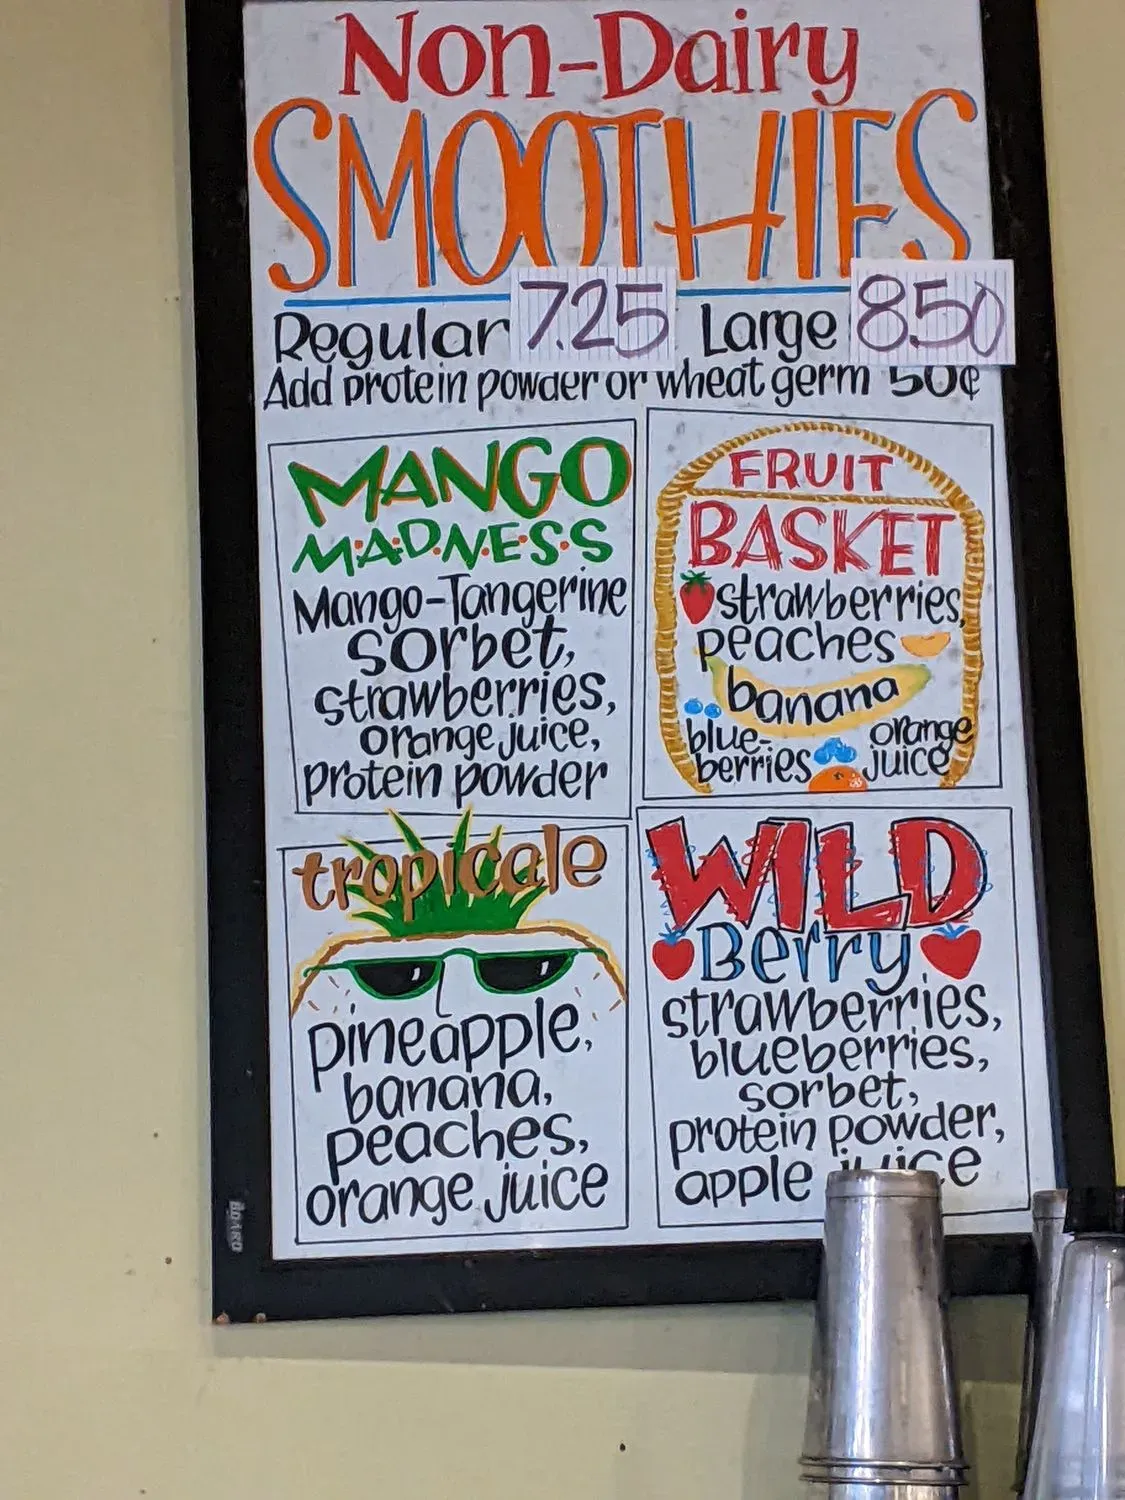 Non-Dairy
SMOOTHIES
Regular 7.25 Large 8.50
Add protein powder or wheat germ 50¢
MANGO
M·A·D·N·E·S·S
Mango-Tangerine
sorbet,
strawberries,
orange juice,
protein powder
FRUIT
BASKET
strawberries,
peaches
banana
blue-
berries
orange
juice
tropicale
pineapple,
banana,
peaches,
orange juice
WILD
Berry
strawberries,
blueberries,
sorbet,
protein powder,
apple juice